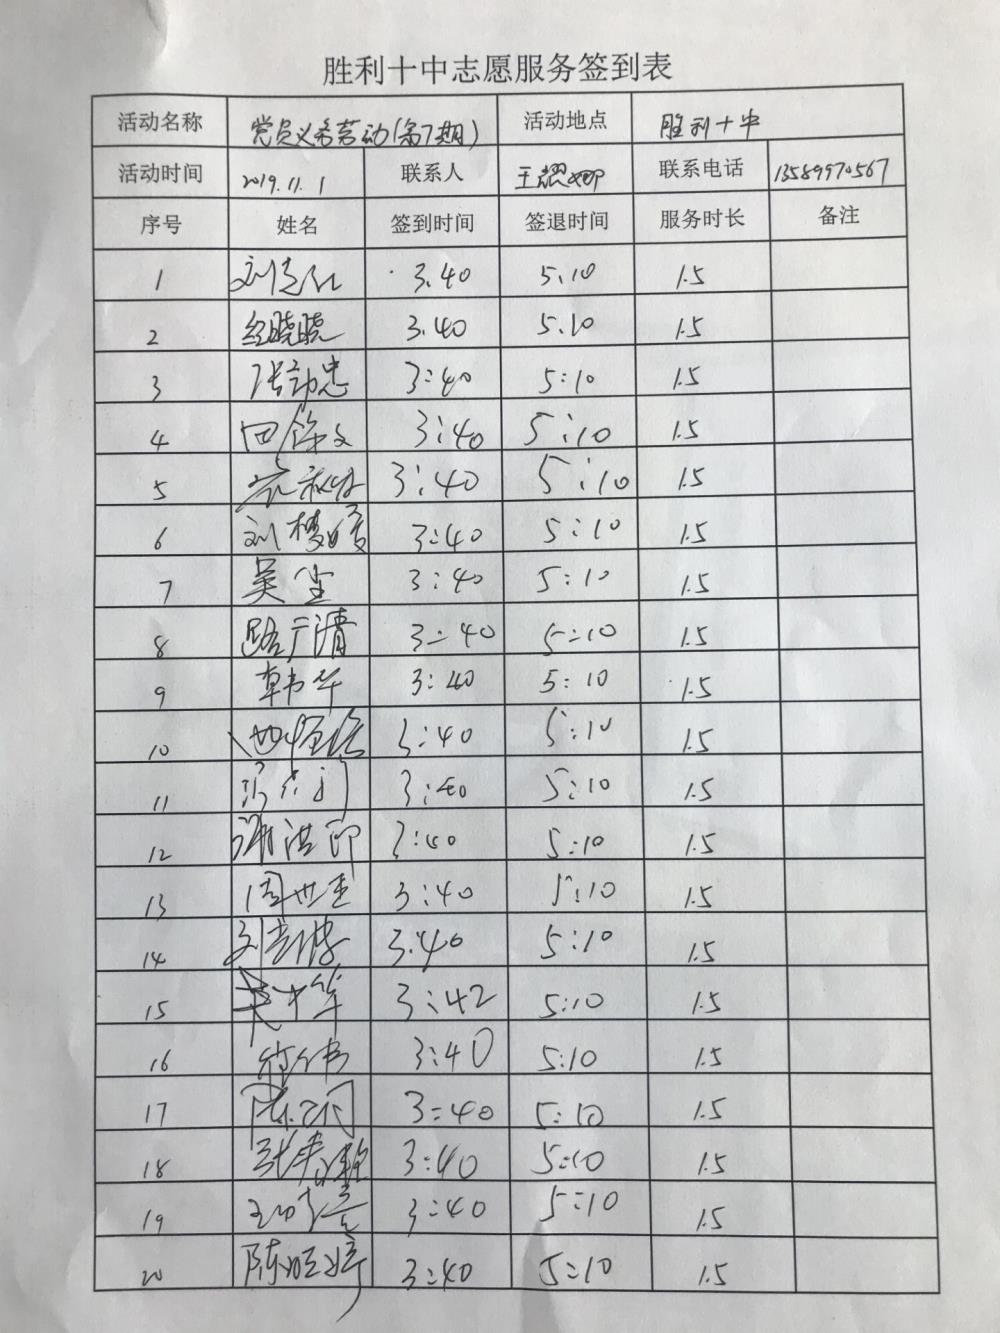 胜利十中志愿服务签到表
活动名称 党员义务劳动(第7期) 活动地点 胜利十中
活动时间 2019.11.1 联系人 王 联系电话 13589970567
序号 姓名 签到时间 签退时间 服务时长 备注
1 3.40 5:10 1.5
2 晓晓 3.40 5.10 1.5
3 张 忠 3:40 5:10 1.5
4 田 3:40 5:10 1.5
5 3:40 5:10 1.5
6 刘 3:40 5:10 1.5
7 吴 3:40 5:10 1.5
8 路广清 3:40 5:10 1.5
9 韩华 3:40 5:10 1.5
10 3:40 5:10 1.5
11 3:40 5:10 1.5
12 谢洪印 3:40 5:10 1.5
13 周世 3:40 5:10 1.5
14 刘 3.40 5:10 1.5
15 3:42 5:10 1.5
16 3:40 5:10 1.5
17 陈 3:40 5:10 1.5
18 张 3:40 5:10 1.5
19 3:40 5:10 1.5
20 陈 婷 3:40 5:10 1.5